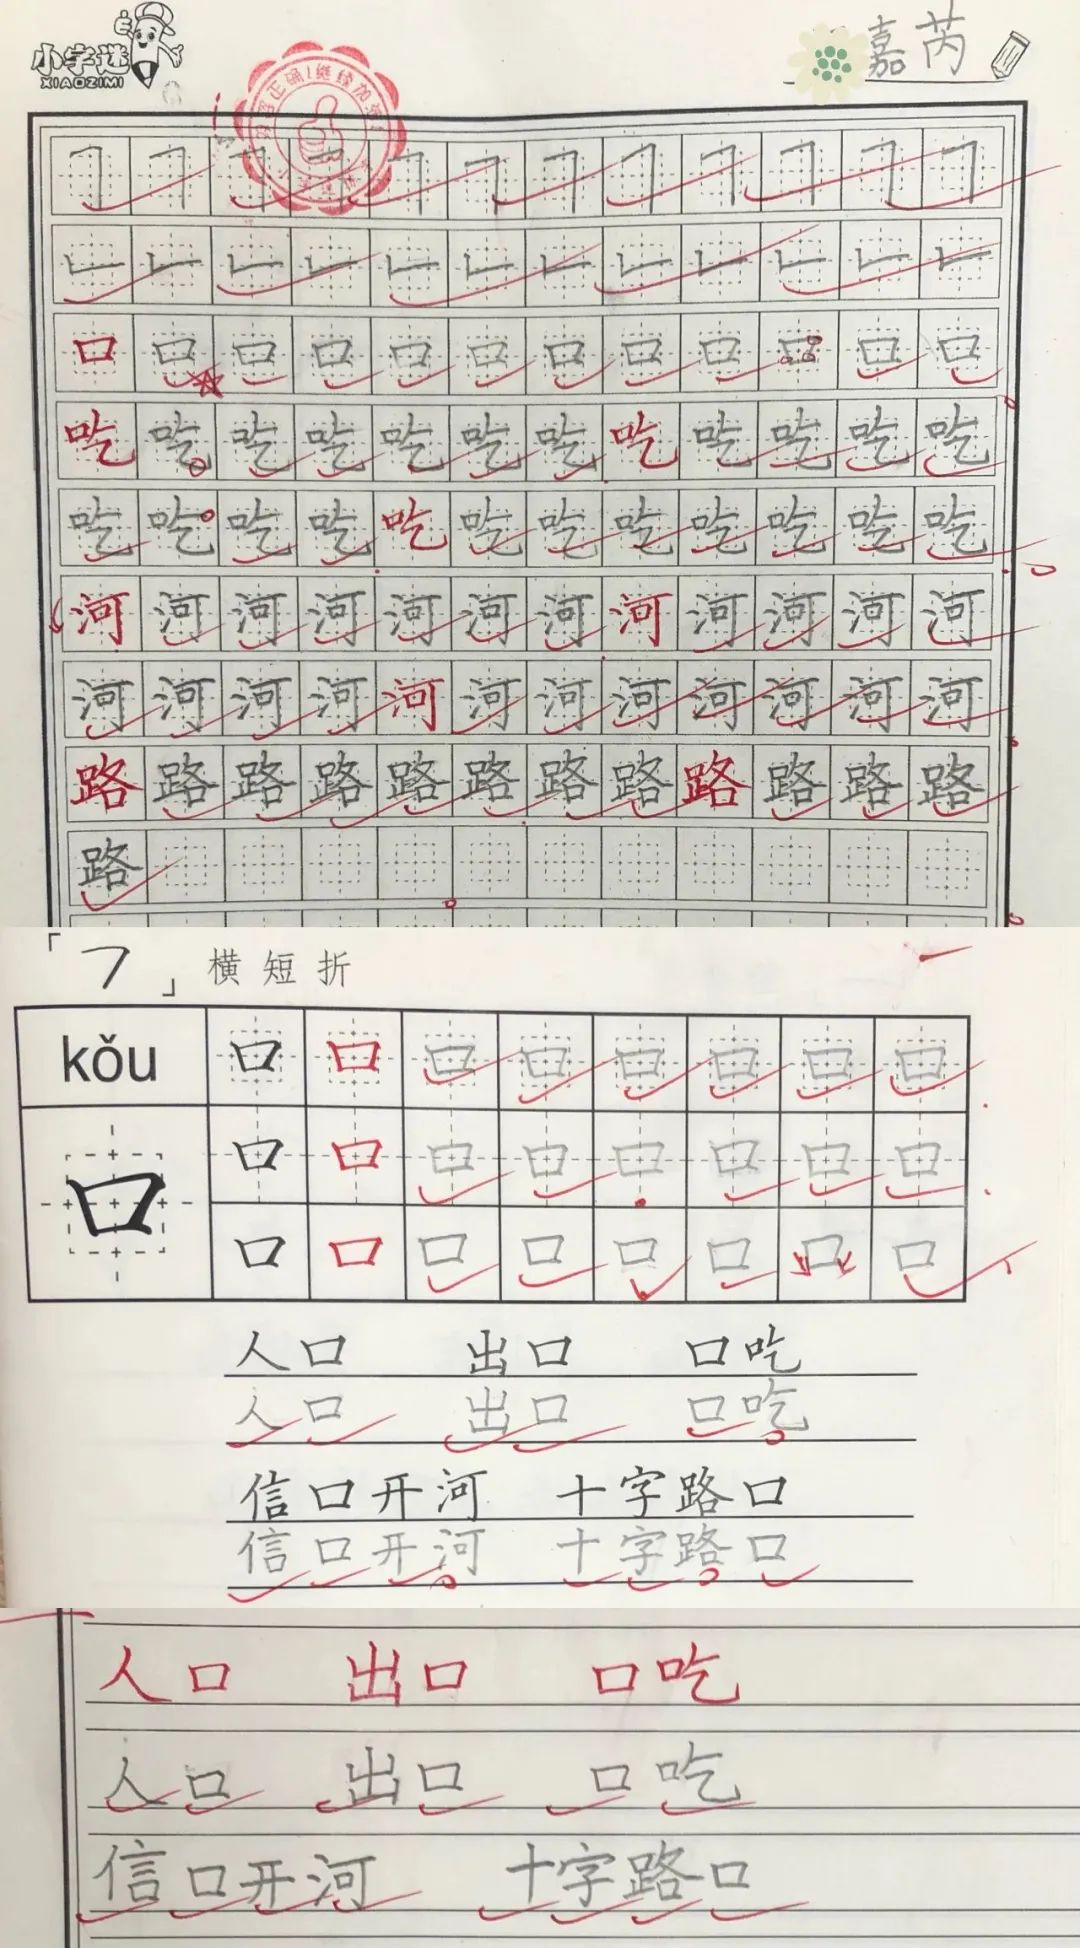 小字迷
XIAOZIMI
嘉芮
口口口口口口口口口口口口
吃吃吃吃吃吃吃吃吃吃吃吃
吃吃吃吃吃吃吃吃吃吃吃吃
河河河河河河河河河河河河
河河河河河河河河河河河河
路路路路路路路路路路路路
路
「㇕」 横短折
kǒu 口口口口口口口口
口 口口口口口口口口
口口口口口口口口
人口 出口 口吃
人口 出口 口吃
信口开河 十字路口
信口开河 十字路口
人口 出口 口吃
人口 出口 口吃
信口开河 十字路口